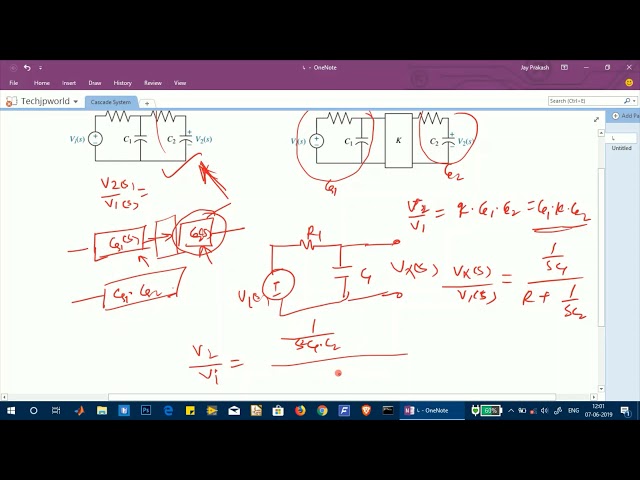 L - OneNote
Jay Prakash
File Home Insert Draw History Review View
Techjpworld Cascade System +
Search (Ctrl+E)
Add Page
Untitled
V₁(s) C₁ C₂ V₂(s)
V₁(s) C₁ K C₂ V₂(s)
G₁ G₂
V₂(s)/V₁(s) =
V₂/V₁ = K·G₁·G₂ = G₁·K·G₂
G₁(s) G₂(s)
G₁·G₂
R₁
V₁(s) C₁ Vx(s)
Vx(s)/V₁(s) = (1/SC₁)/(R + 1/SC₂)
V₂/Vi =
L - OneNote
60%
ENG
12:01
07-06-2019